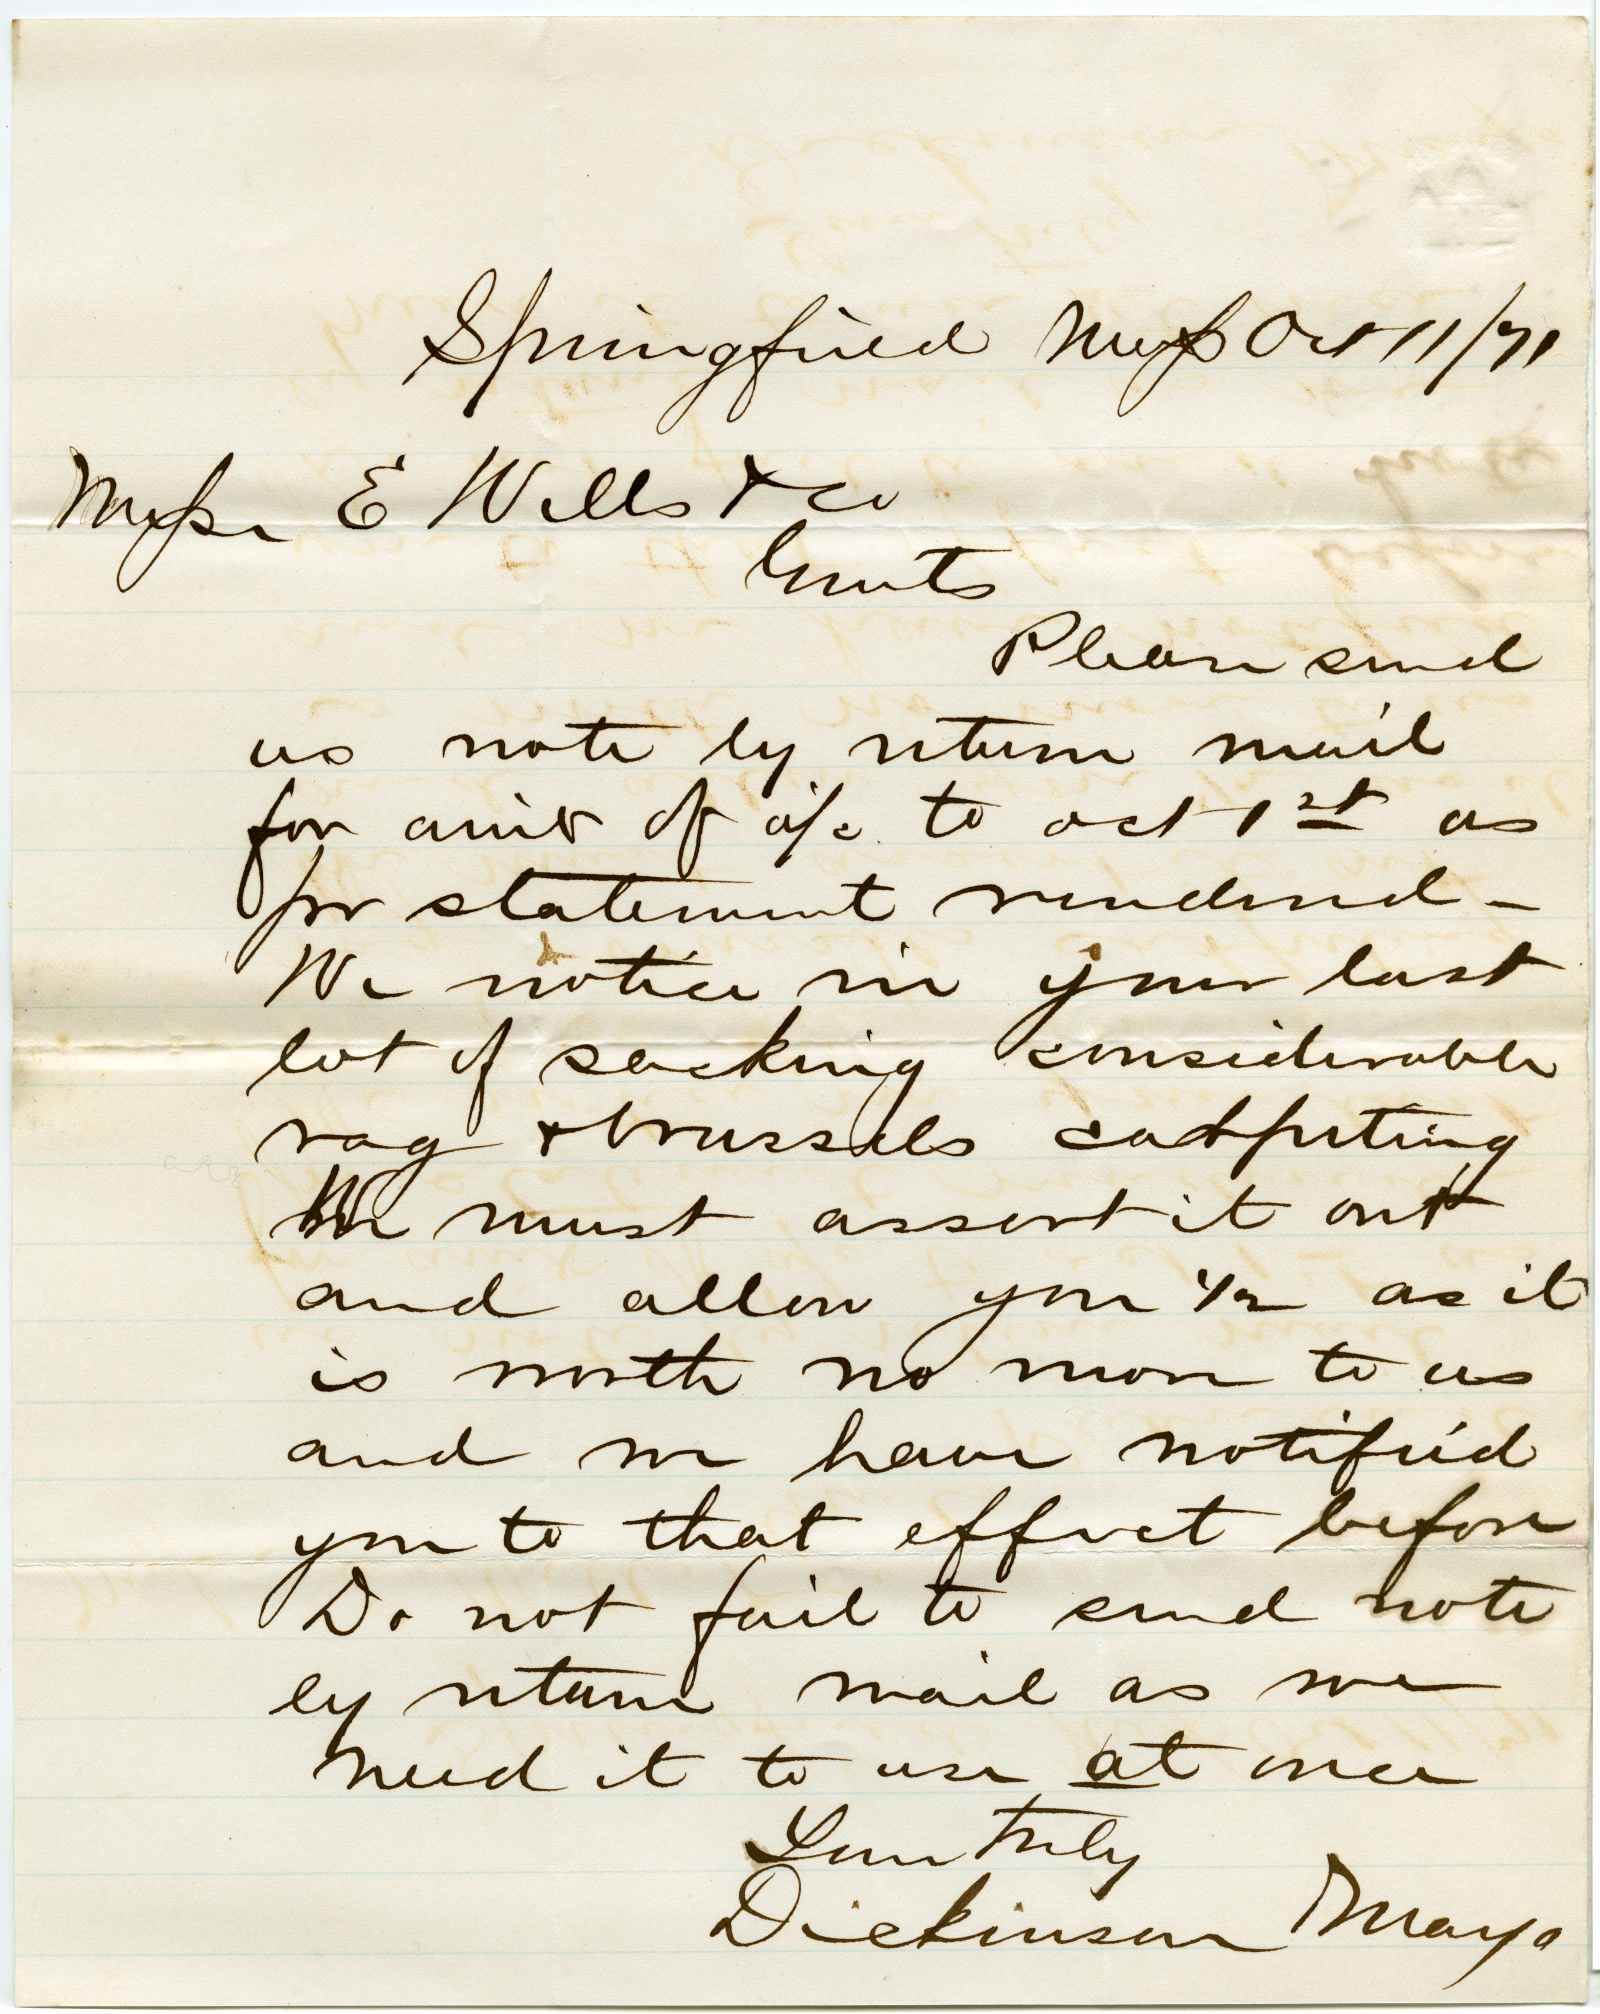 Springfield Mass Oct 11/71
Messr E Wells & co
Gents
Please send
us note by return mail
for amt of a/c to oct 1st as
per statement rendered –
We notice in your last
lot of sacking considerable
rag & brussels carpeting
We must assort it out
and allow you 1/2 as it
is worth no more to us
and we have notified
you to that effect before
Do not fail to send note
by return mail as we
need it to use at once
Yours truly
Dickinson & Mayo